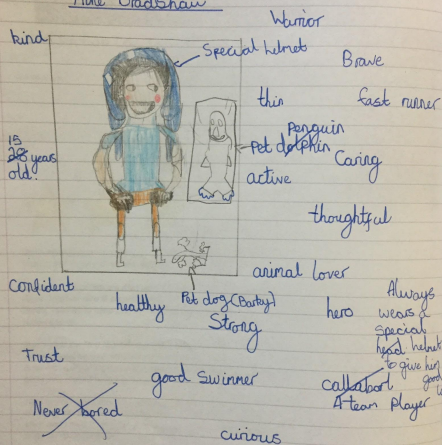 Bradshaw
Warrior
kind
Special helmet
Brave
thin
fast runner
Penguin
Pet dolphin
Caring
15
28 years
old.
active
thoughtful
animal lover
confident
healthy
Pet dog (Barky)
Strong
hero
Always
wears a
special
head helmet
to give him
good
Trust
good swimmer
callabort
A team player
Never bored
curious